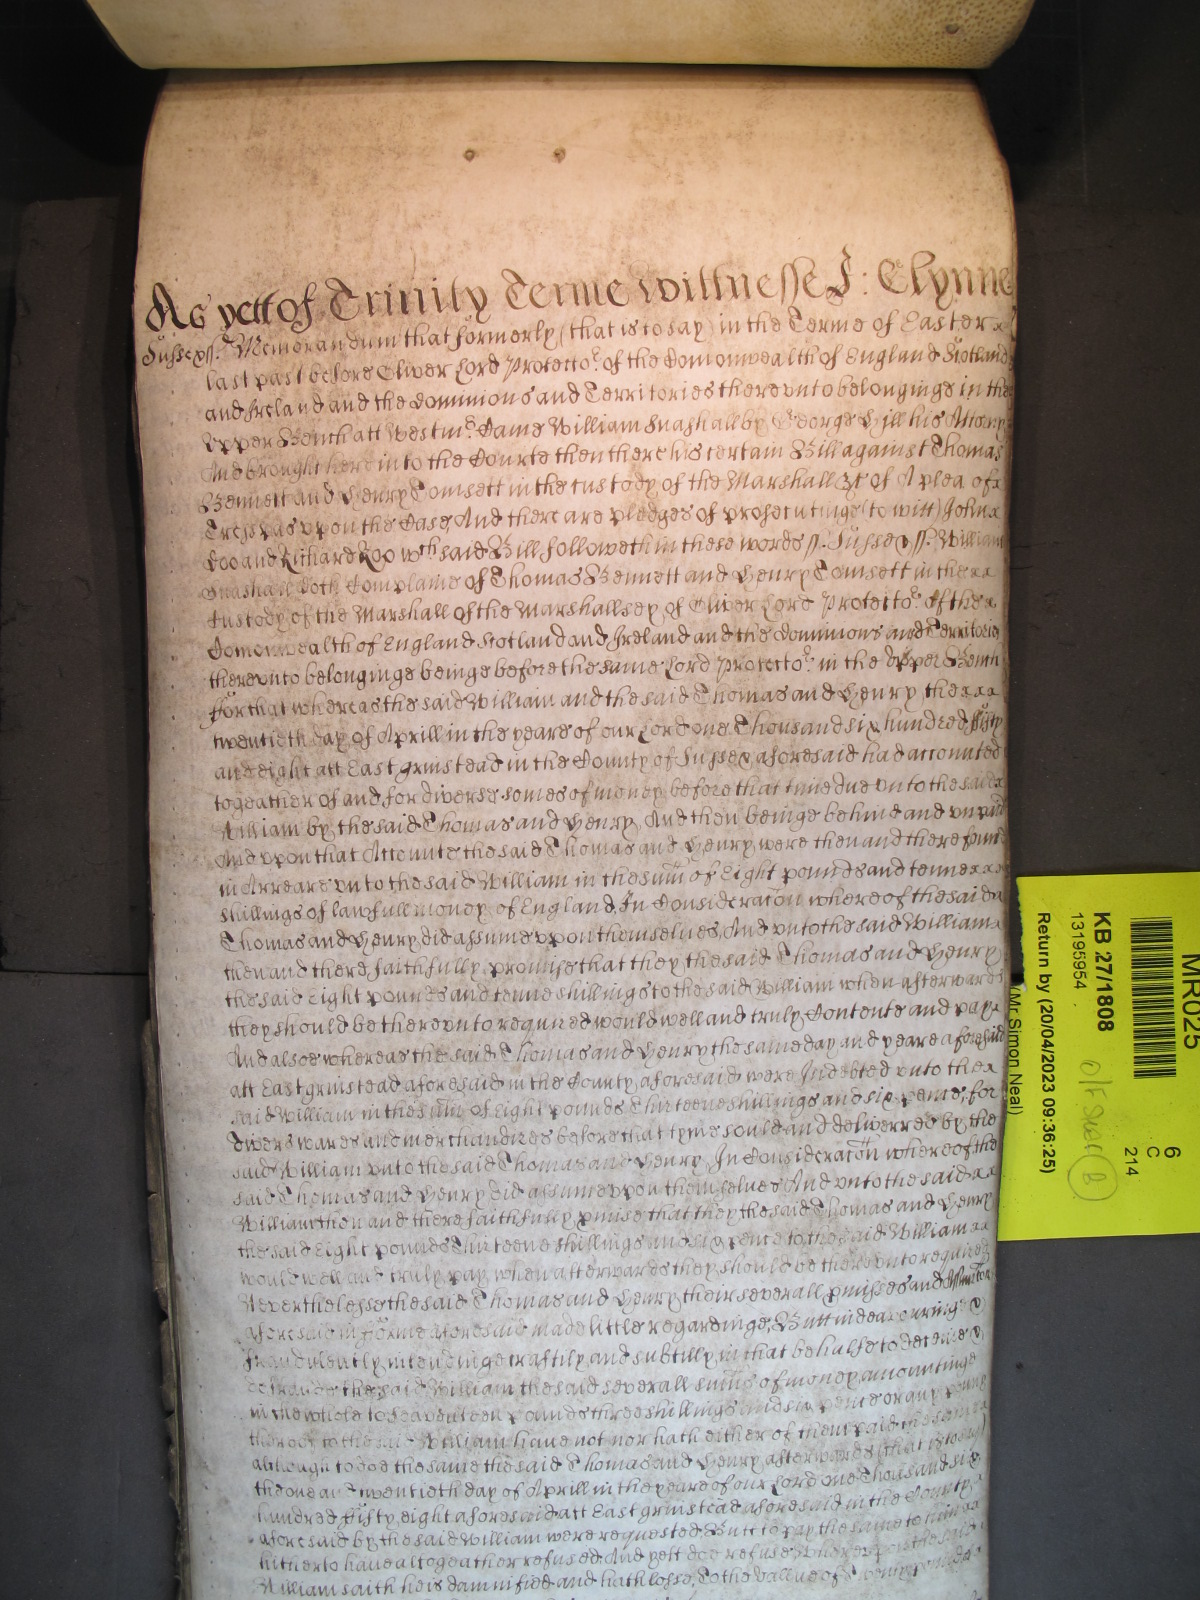 As yett of Trinity Terme Wittnesse J: Glynne
Sussex ss. Memorandum that formerly (that is to say) in the Terme of Easter
last past before Oliver Lord Protecto:r of the Comonwealth of England Scotland
and Ireland and the dominions and Territories thereunto belonginge in the
Upper Bench att Westm:r Came William Snashall by George Hill his Attorny
And brought here into the Courte then there his certain Bill against Thomas
Bennett and Henry Comsett in the custody of the Marshall &c of A plea of
Trespas upon the Case, And there are pledges of prosecutinge (to witt) John
Doo and Richard Roo wch said Bill followeth in these words ss. Sussex ss. William
Snashall doth Complaine of Thomas Bennett and Henry Comsett in the
custody of the Marshall of the Marshallsey of Oliver Lord Protecto:r of the
Comonwealth of England Scotland and Ireland and the dominions and Territories
thereunto belonginge beinge before the same Lord Protecto:r in the Upper Bench
For that whereas the said William and the said Thomas and Henry the
twentieth day of Aprill in the yeare of our Lord one Thousand six hundred fifty
and eight att East grinstead in the County of Sussex aforesaid had accounted
togeather of and for diverse somes of money before that time due unto the said
William by the said Thomas and Henry, And then beinge behind and unpaid
And upon that Accounte the said Thomas and Henry were then and there found
in Arreare unto the said William in the sum̄ of Eight pounds and tenne
shillings of lawfull money of England, In Consideracōn whereof the said
Thomas and Henry did assume upon themselves, And unto the said William
then and there faithfully promise that they the said Thomas and Henry
the said Eight pounds and tenne shillings to the said William when afterwards
they should be thereunto required would well and truly Contente and pay
And alsoe whereas the said Thomas and Henry the same day and yeare aforesaid
att East grinstead aforesaid in the County aforesaid were Indebted unto the
said William in the sum̄ of Eight pounds Thirteene shillings and six pence, for
divers wares and merchandizes before that tyme sould and deliverred by the
said William unto the said Thomas and Henry, In Consideracōn whereof the
said Thomas and Henry did assume upon themselves And unto the said
William then and there faithfully pmise that they the said Thomas and Henry
the said Eight pounds Thirteene shillings and six pence to the said William
would well and truly pay when afterwards they should be thereunto required
Neverthelesse the said Thomas and Henry their severall pmisses and
aforesaid in forme aforesaid made little regardinge, Butt indeavourringe
fraudulently intendinge craftily and subtilly in that behalfe to deceive &
defraude the said William the said severall sum̄s of money amountinge
in the whole to seaventeen pounds three shillings and six pence or any penny
thereof to the said William have not nor hath either of them paid
although to doe the same the said Thomas and Henry afterwards (that is to say)
the one and twentieth day of Aprill in the yeare of our Lord one Thousand six
hundred fifty eight aforesaid att East grinstead aforesaid in the County
aforesaid by the said William were requested, Butt to pay the same to him
hitherto have altogeather refused, And yett doe refuse Whereupon the said
William saith he is damnified and hath losse, To the vallue of Twenty pounds
MR025
6
C
214
KB 27/1808
13195954
Return by (20/04/2023 09:36:25)
(Mr Simon Neal)